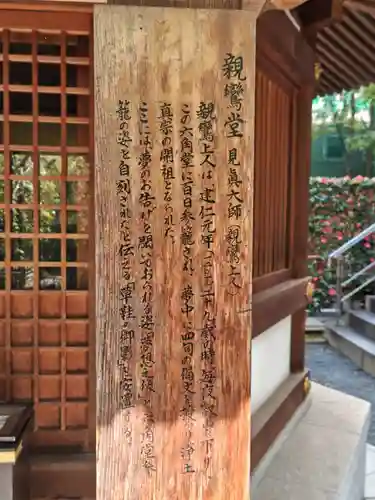 親鸞堂 見眞大師(親鸞上人)
親鸞上人は、建仁元年(一二〇一)二十九歳の時、毎夜比叡を下り、
この六角堂に百日参籠され、夢中に四句の偈文を授り、浄土
真宗の開祖となられた。
ここには、夢のお告げを聞いておられる姿「夢想之像」と、六角堂参
籠の姿を自刻されたと伝える「草鞋の御影」を安置する。